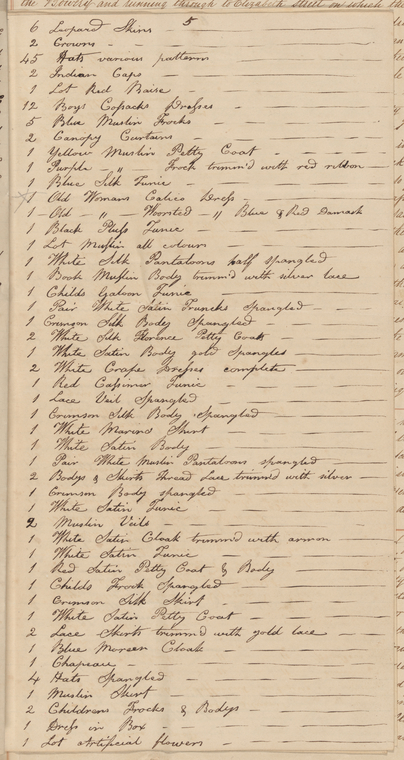 the Bowery and running through to Elizabeth Street on which
5
6 Leopard Skins
2 Crowns
45 Hats various patterns
2 Indian Caps
1 Lot Red Baise
12 Boys Cossacks Dresses
5 Blue Muslin Frocks
2 Canopy Curtains
1 Yellow Muslin Petty Coat
1 Purple " Frock trimm'd with red ribbon
1 Blue Silk Tunic
1 Old Womans Calico Dress
1 Old " Woorsted " Blue & Red Damask
1 Black Plush Tunic
1 Lot Muslin all colours
1 White Silk Pantaloons half spangled
1 Book Muslin Body trimm'd with silver lace
1 Childs Galoon Tunic
1 Pair White Satin Truncks Spangled
1 Crimson Silk Body Spangled
2 White Silk Florence Petty Coats
1 White Satin Body gold Spangles
2 White Crape Dresses complete
1 Red Cassimir Tunic
1 Lace Veil Spangled
1 Crimson Silk Body Spangled
1 White Marino Skirt
1 White Satin Body
1 Pair White Muslin Pantaloons spangled
2 Bodys & Skirts thread Lace trimm'd with silver
1 Crimson Body spangled
1 White Satin Tunic
2 Muslin Veils
1 White Satin Cloak trimm'd with
1 White Satin Tunic
1 Red Satin Petty Coat & Body
1 Childs Frock Spangled
1 Crimson Silk Skirt
1 White Satin Petty Coat
2 Lace Skirts trimm'd with gold lace
1 Blue Moreen Cloak
1 Chapeau
4 Hats Spangled
1 Muslin Skirt
2 Childrens Frocks & Bodys
1 Dress in Box
1 Lot Artificial flowers